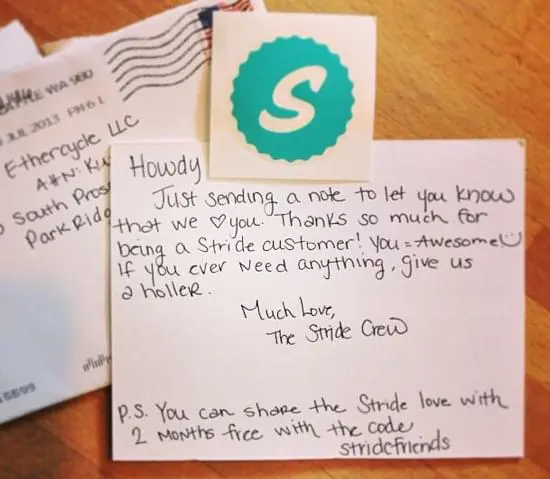 SEATTLE WA 980
JUL 2013 PM 6 L
Ethercycle LLC
Attn: Ku
South Pros
Park Ridg
S
Howdy
Just sending a note to let you know
that we ♡ you. Thanks so much for
being a Stride customer! You = Awesome
If you ever need anything, give us
a holler.
Much Love,
The Stride Crew
P.S. You can share the Stride love with
2 months free with the code
stridefriends